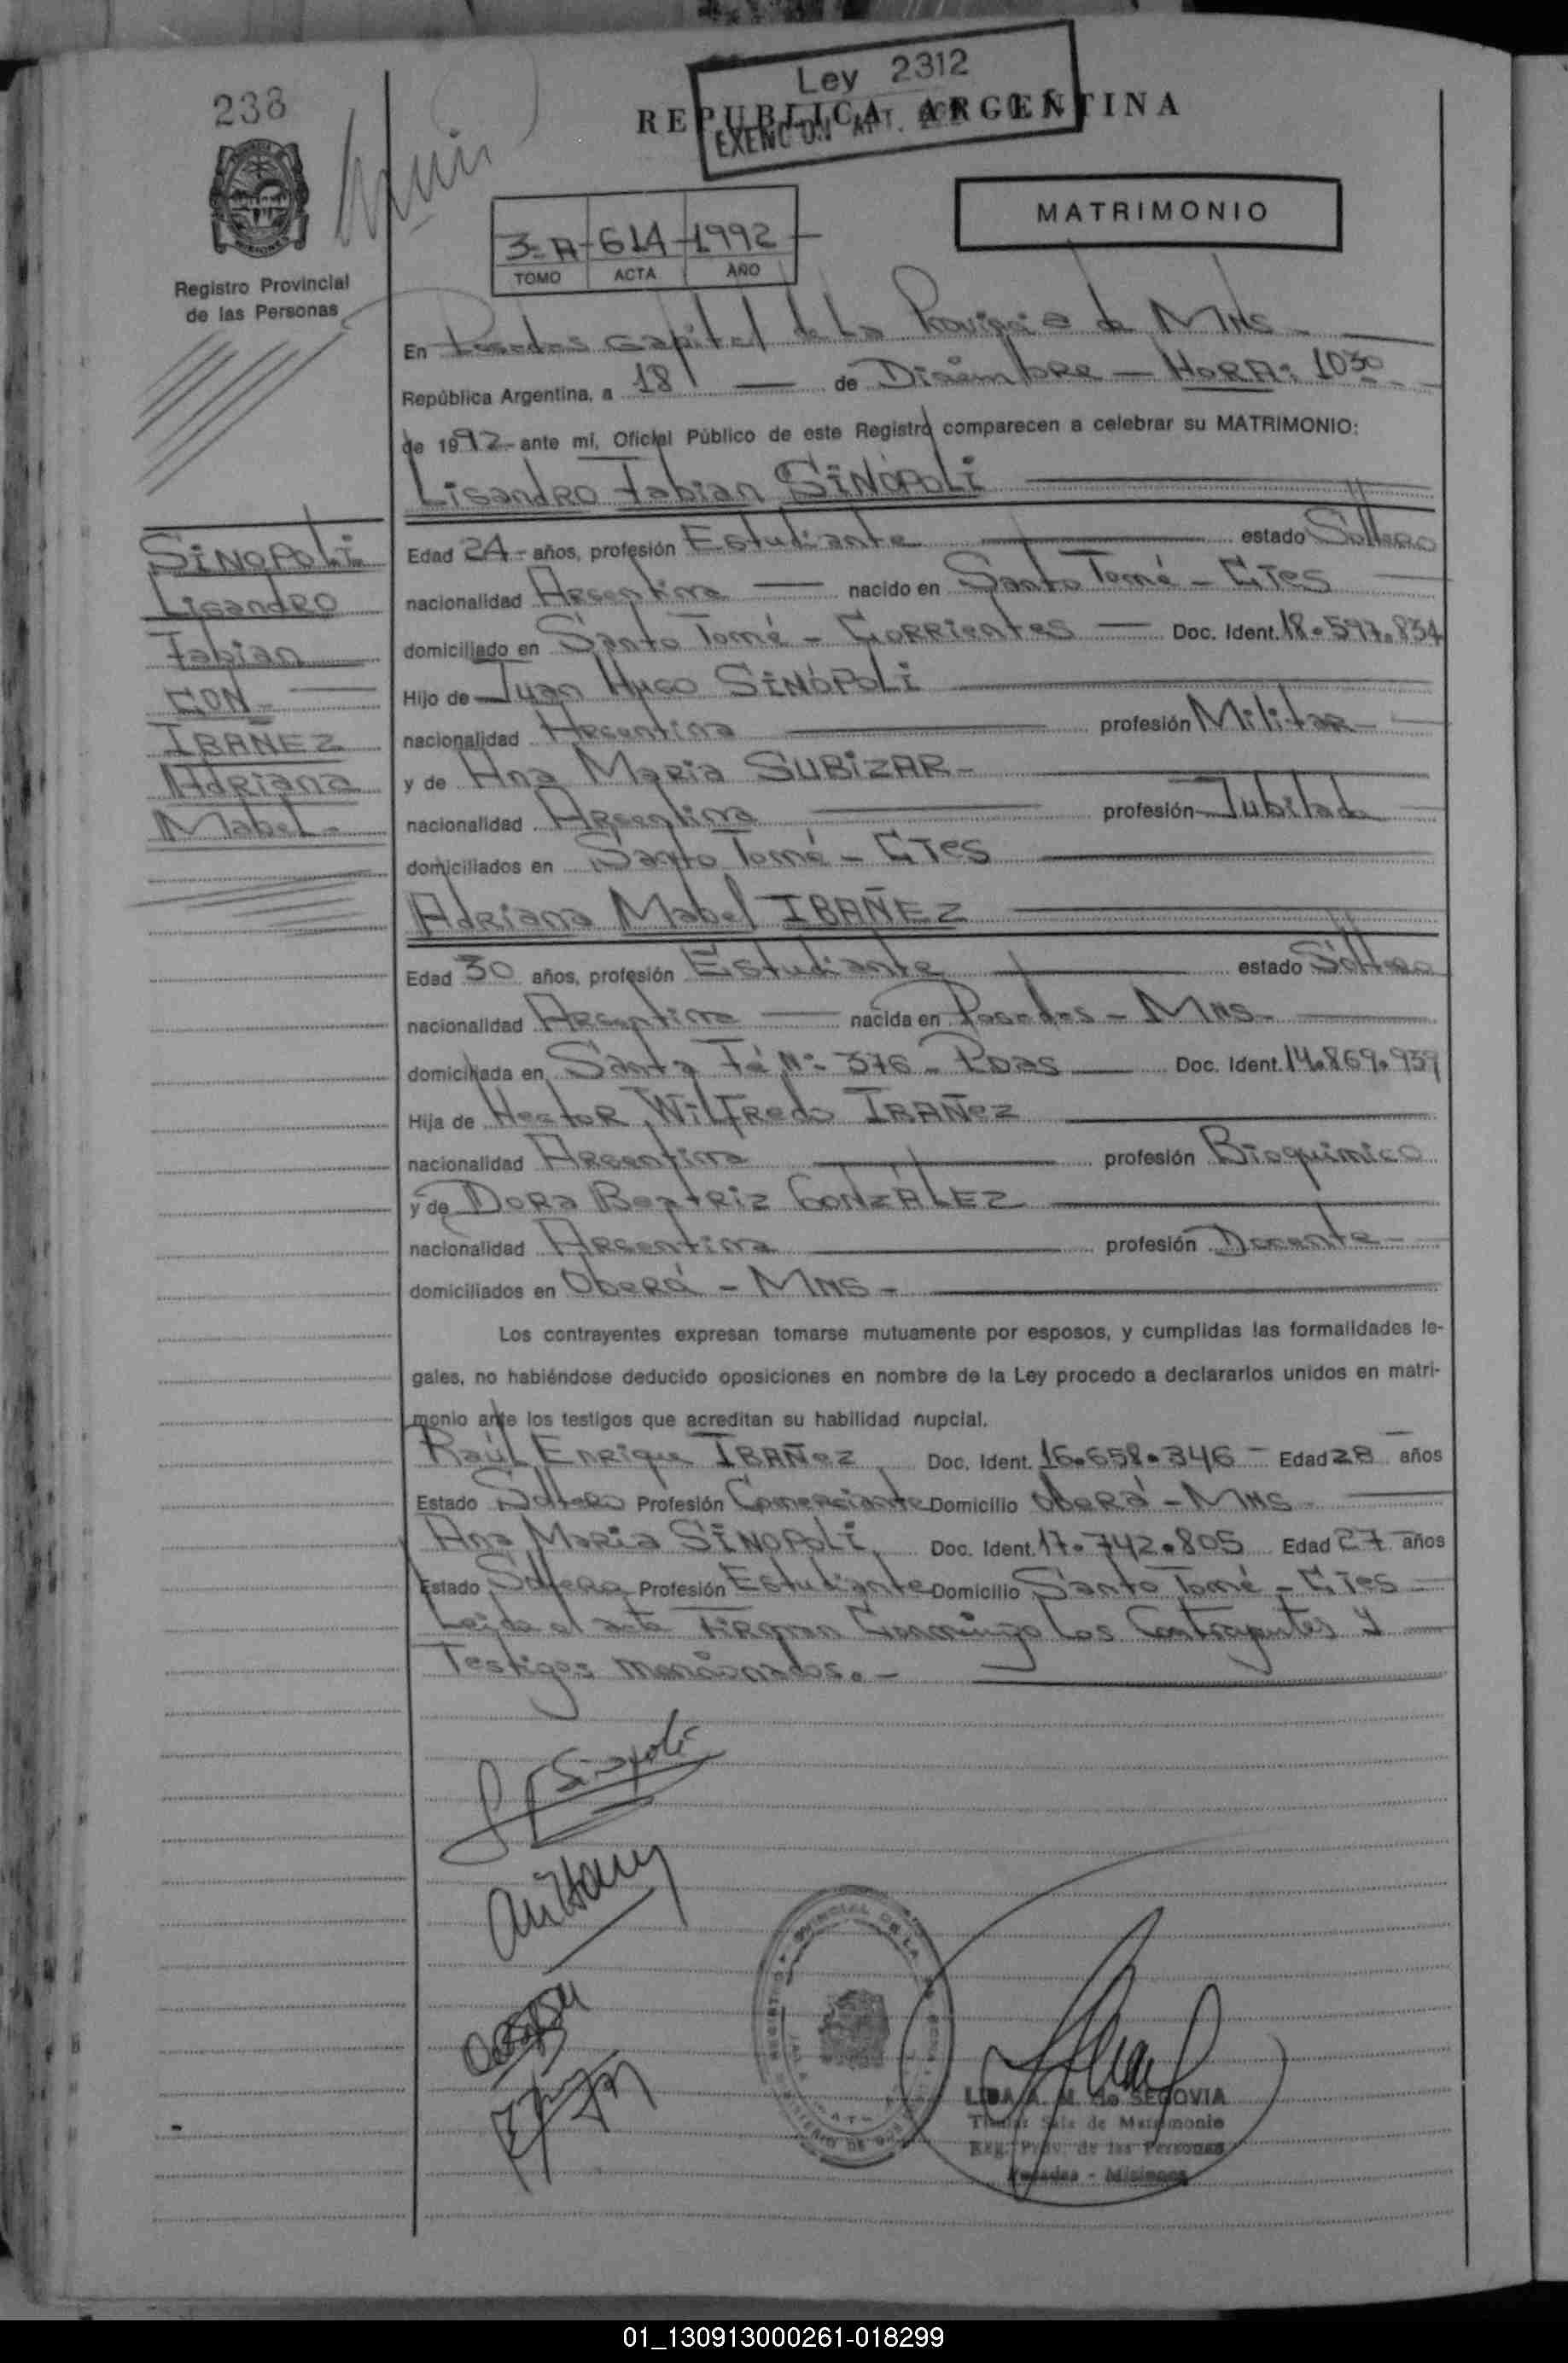 238
Ley 2312
REPUBLICA ARGENTINA
EXENCION ART.
MISIONES
Registro Provincial
de las Personas
3-A - 614 - 1992
TOMO ACTA AÑO
MATRIMONIO
En Posadas Capital de La Provincia de MNS
República Argentina, a 18 de Diciembre - HORA: 1030
de 1992 ante mí, Oficial Público de este Registro comparecen a celebrar su MATRIMONIO:
Lisandro Fabian SINÓPOLI
SINOPOLI
Lisandro
Fabian
CON
IBAÑEZ
Adriana
Mabel
Edad 24 años, profesión Estudiante estado Soltero
nacionalidad Argentina nacido en Santo Tomé - CTES
domiciliado en Santo Tomé - CORRIENTES Doc. Ident. 18.597.834
Hijo de Juan Hugo SINÓPOLI
nacionalidad Argentina profesión Militar
y de Ana Maria SUBIZAR
nacionalidad Argentina profesión Jubilada
domiciliados en Santo Tomé - CTES
Adriana Mabel IBAÑEZ
Edad 30 años, profesión Estudiante estado Soltero
nacionalidad Argentina nacida en Posadas - MNS
domiciliada en Santa Fé Nº 376 - PDAS Doc. Ident. 14.869.939
Hija de Hector Wilfredo IBAÑEZ
nacionalidad Argentina profesión Bioquimico
y de Dora Beatriz GONZALEZ
nacionalidad Argentina profesión Docente
domiciliados en Oberá - MNS
Los contrayentes expresan tomarse mutuamente por esposos, y cumplidas las formalidades le-
gales, no habiéndose deducido oposiciones en nombre de la Ley procedo a declararlos unidos en matri-
monio ante los testigos que acreditan su habilidad nupcial.
Raúl Enrique IBAÑEZ Doc. Ident. 16.658.346 Edad 28 años
Estado Soltero Profesión Comerciante Domicilio Oberá - MNS
Ana Maria SINOPOLI Doc. Ident. 17.742.805 Edad 27 años
Estado Soltera Profesión Estudiante Domicilio Santo Tomé - CTES
Leida el acta Firman Conmigo Los Contrayentes y
Testigos mencionados.
Sinopoli
A. M. de SEGOVIA
Titular Sala de Matrimonio
Reg. Prov. de las Personas
Posadas - Misiones
01_130913000261-018299